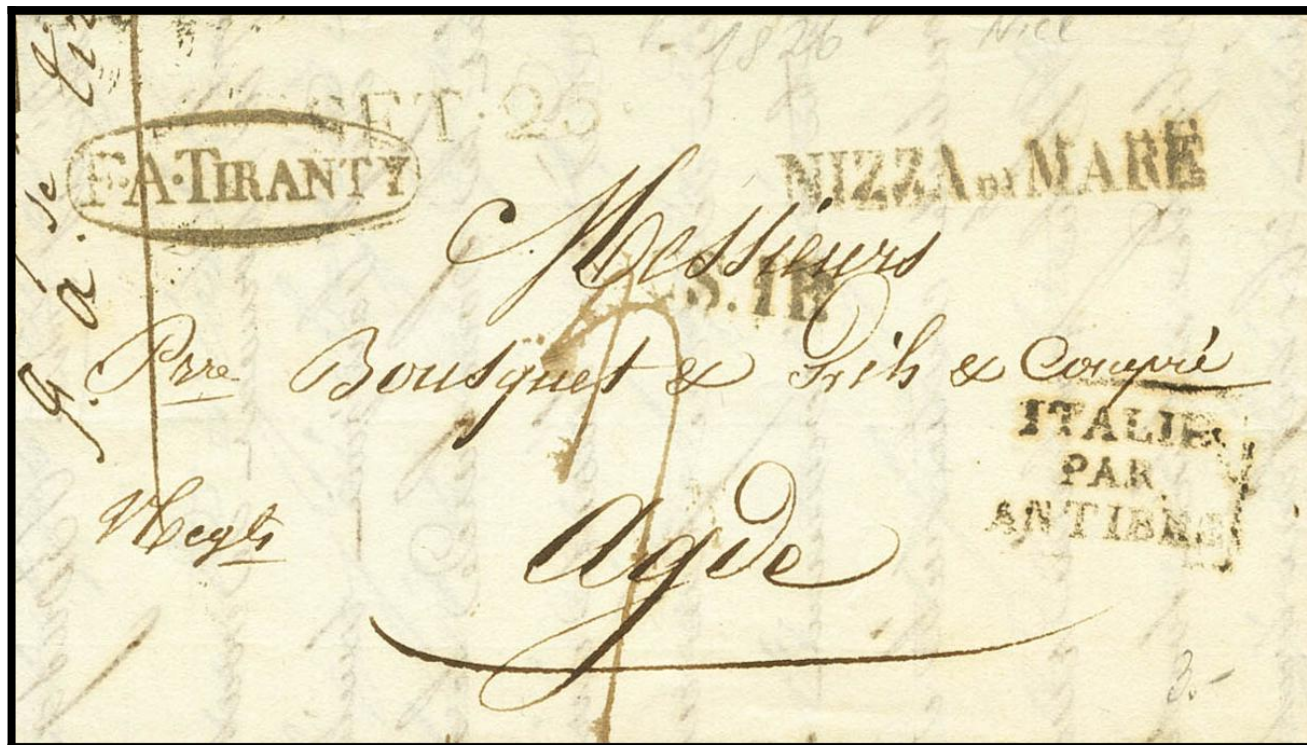 1826 Nice
SET. 25
F.A. TIRANTY
NIZZA DI MARE
Messieurs
S. 1R
Prre Bousquet & & Compie
ITALIE
PAR
ANTIBES
Negts
Agde